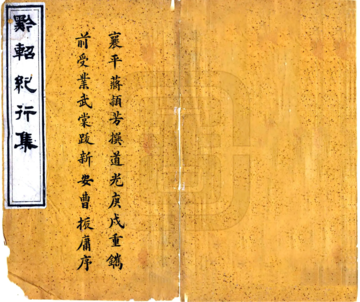 黔軺紀行集
襄平蔣攸芳撰道光庚戌重鐫
前受業武棠跋新安曹振庸序